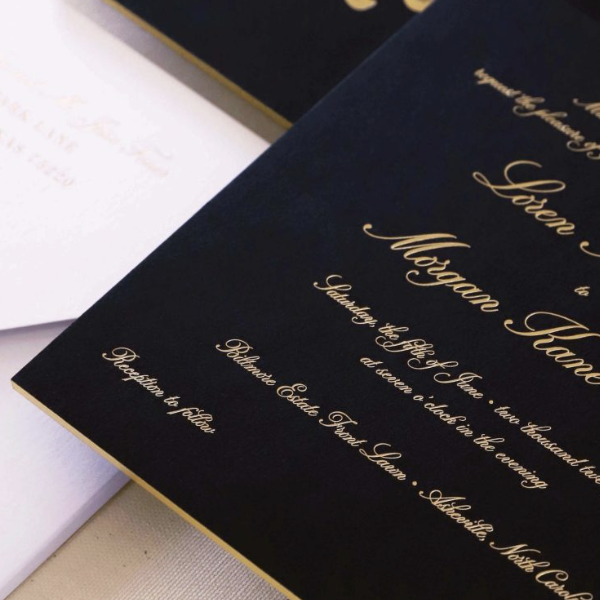 request the pleasure of
Loren
to
Morgan Kane
Saturday, the fifth of June • two thousand
at seven o'clock in the evening
Biltmore Estate Front Lawn • Asheville, North
Reception to follow
LANE